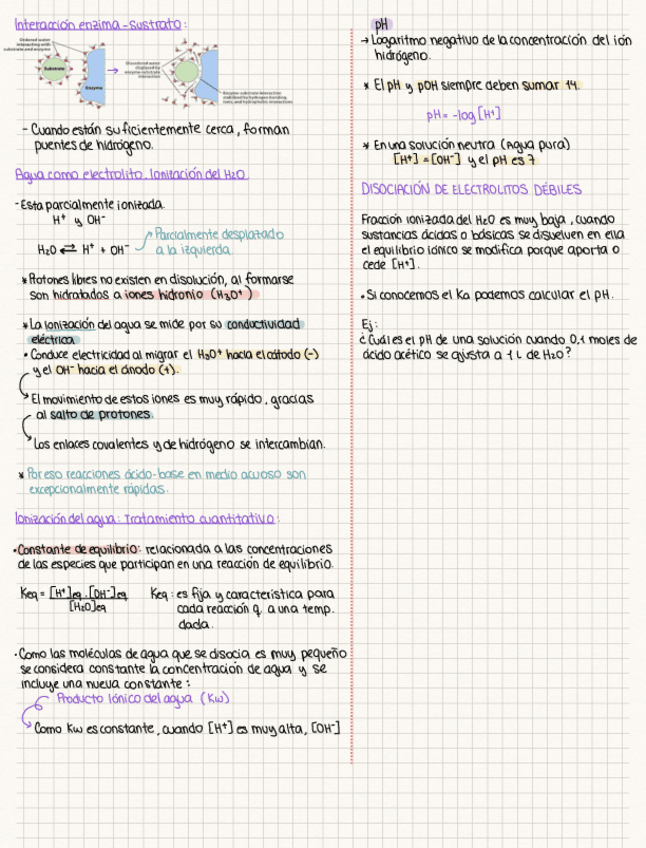 Interacción enzima-sustrato:
Ordered water
interacting with
substrate and enzyme
Substrate
Enzyme
Disordered water
displaced by
enzyme-substrate
interaction
Enzyme-substrate interaction
stabilized by hydrogen bonding,
ionic, and hydrophobic interactions
- Cuando están suficientemente cerca, forman
puentes de hidrógeno.
Agua como electrolito. Ionización del H₂O
- Esta parcialmente ionizada.
H⁺ y OH⁻
H₂O ⇄ H⁺ + OH⁻
Parcialmente desplazado
a la izquierda.
* Protones libres no existen en disolución, al formarse
son hidratados a iones hidronio (H₃O⁺)
* La ionización del agua se mide por su conductividad
eléctrica
• Conduce electricidad al migrar el H₃O⁺ hacia el cátodo (-)
y el OH⁻ hacia el ánodo (+).
El movimiento de estos iones es muy rápido, gracias
al salto de protones.
Los enlaces covalentes y de hidrógeno se intercambian.
* Por eso reacciones ácido-base en medio acuoso son
excepcionalmente rápidas.
Ionización del agua: Tratamiento cuantitativo:
• Constante de equilibrio: relacionada a las concentraciones
de las especies que participan en una reacción de equilibrio.
Keq = [H⁺]eq . [OH⁻]eq
[H₂O]eq
Keq: es fija y característica para
cada reacción q. a una temp.
dada.
• Como las moléculas de agua que se disocia es muy pequeño
se considera constante la concentración de agua y se
incluye una nueva constante:
Producto Iónico del agua (Kw)
Como Kw es constante, cuando [H⁺] es muy alta, [OH⁻]
pH
→ Logaritmo negativo de la concentración del ion
hidrógeno.
* El pH y pOH siempre deben sumar 14.
pH = -log [H⁺]
* En una solución neutra (Agua pura)
[H⁺] = [OH⁻] y el pH es 7
DISOCIACIÓN DE ELECTROLITOS DÉBILES
Fracción ionizada del H₂O es muy baja, cuando
sustancias ácidas o básicas se disuelven en ella
el equilibrio iónico se modifica porque aporta o
cede [H⁺].
• Si conocemos el Ka podemos calcular el pH.
Ej:
¿Cuál es el pH de una solución cuando 0,1 moles de
ácido acético se ajusta a 1 L de H₂O?